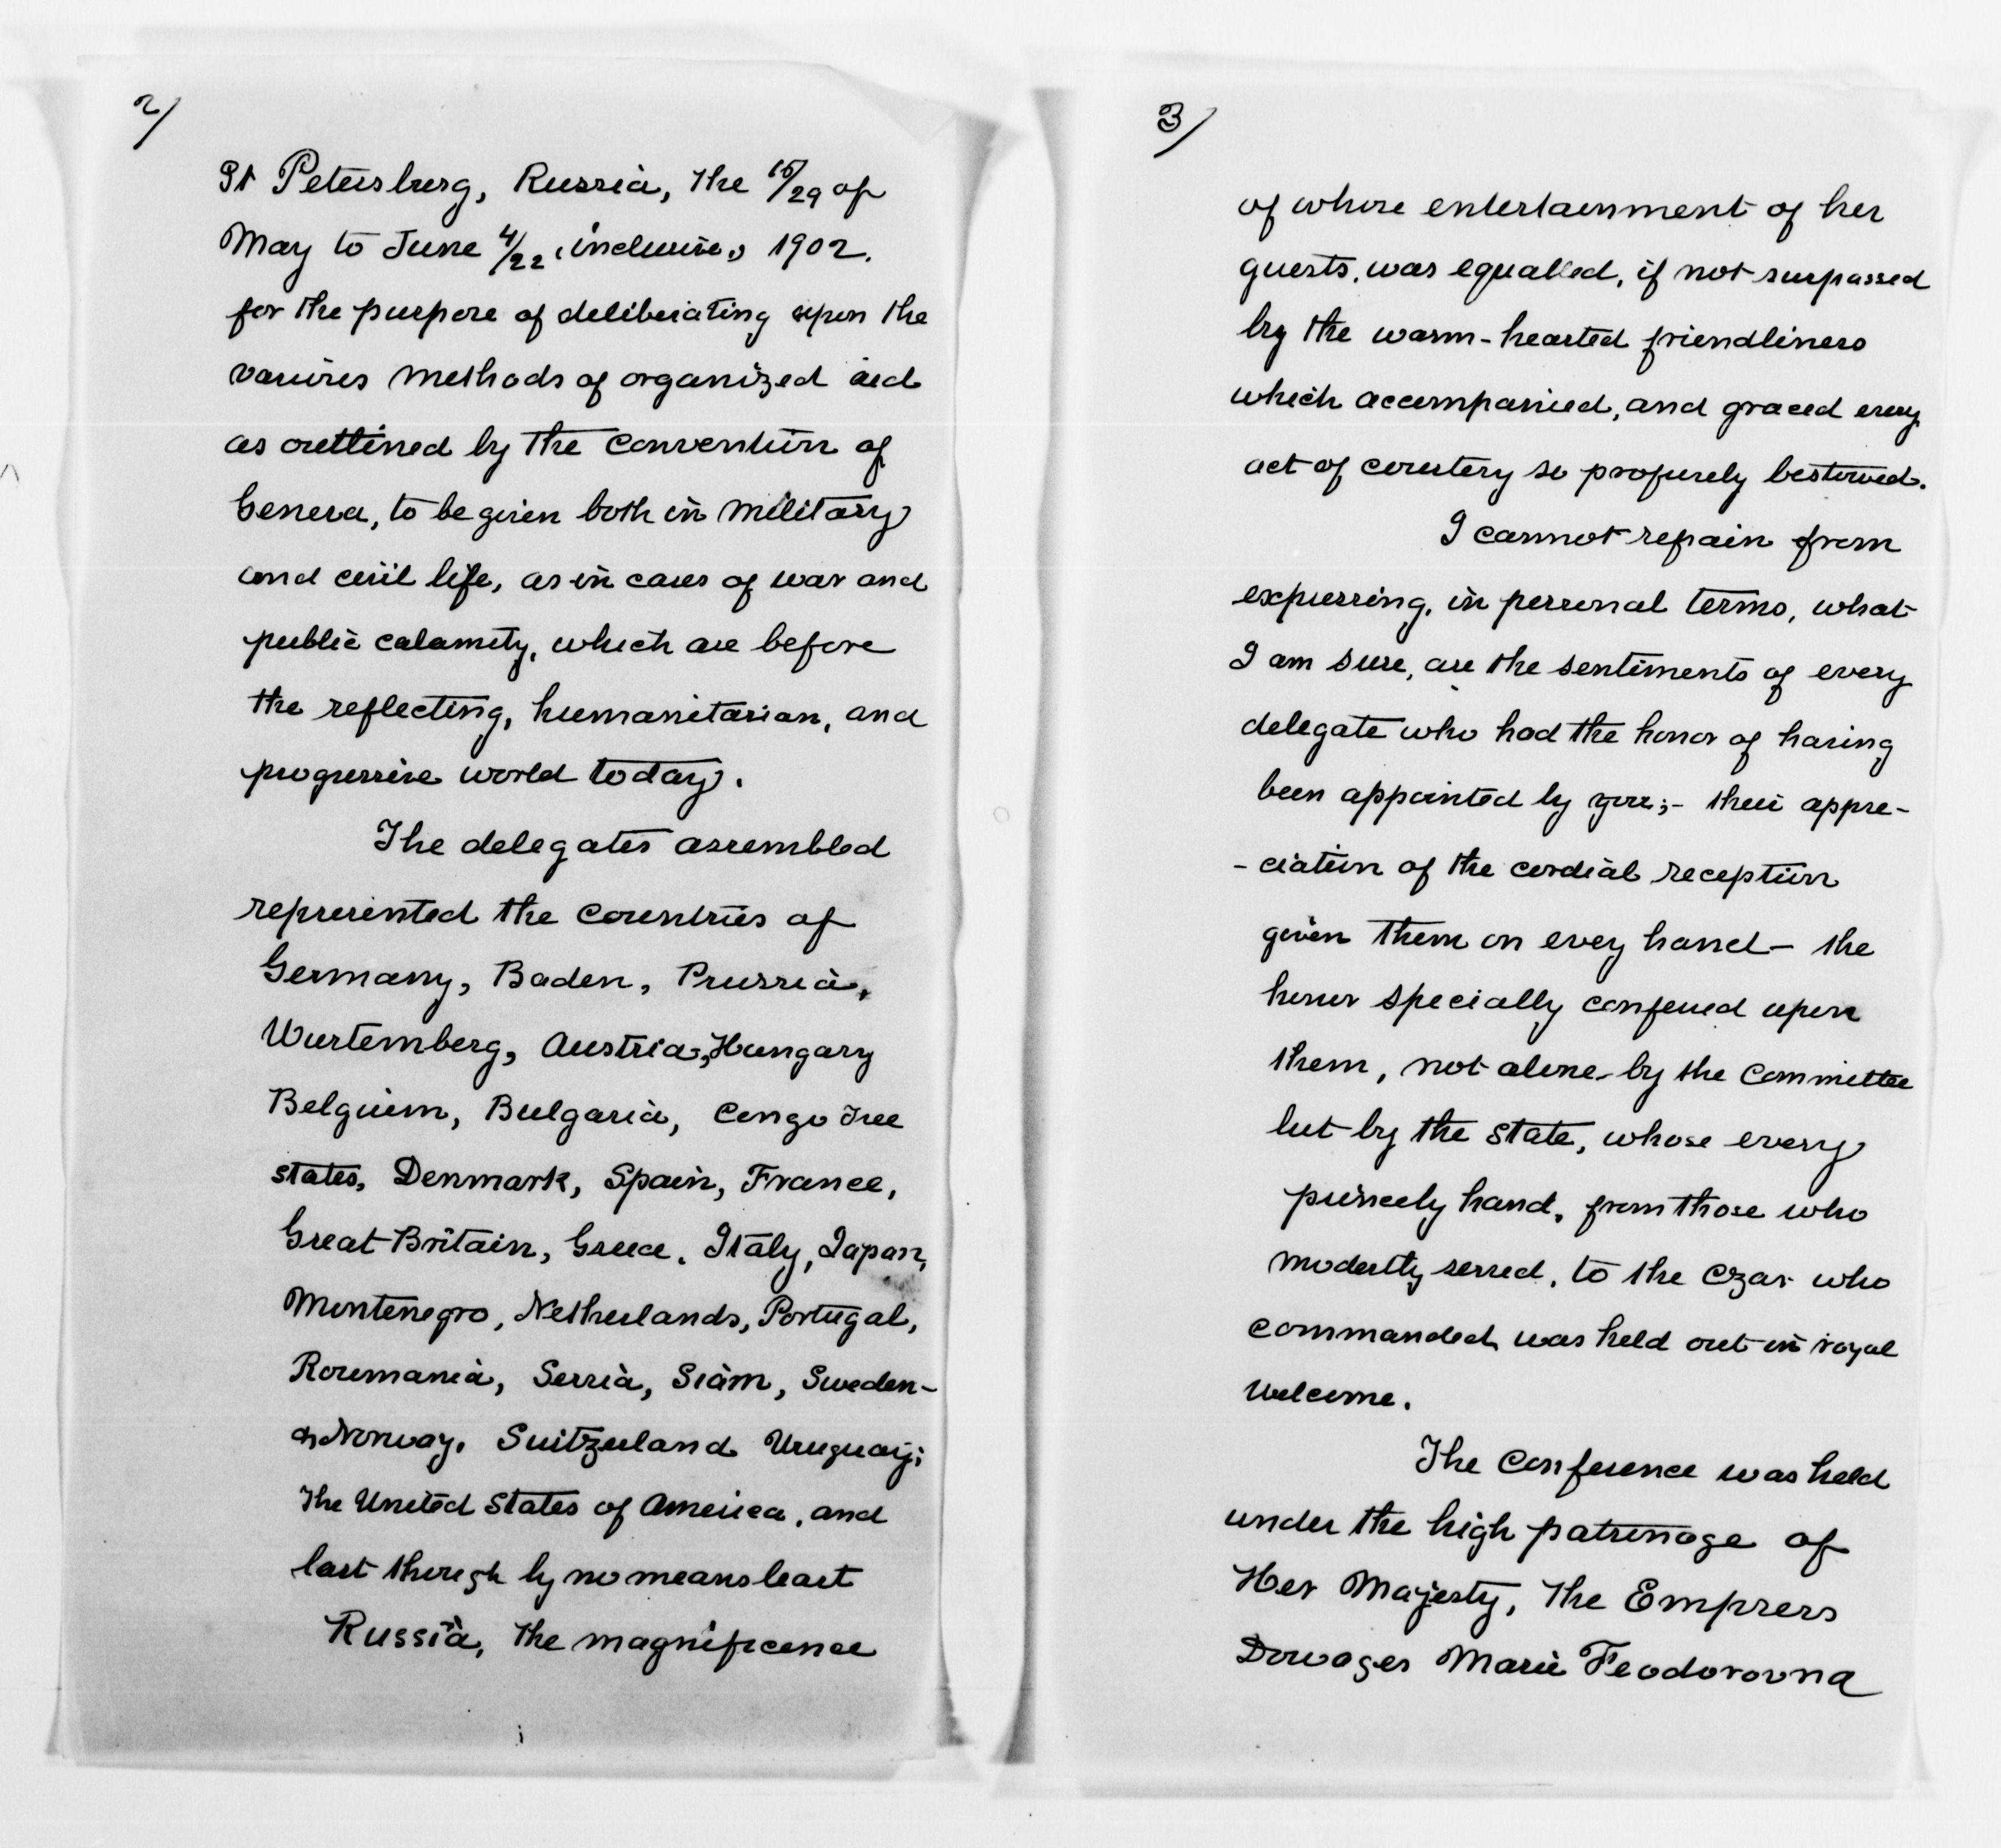 2/
St Petersburg, Russia, the 16/29 of
May to June 4/22 (inclusive) 1902.
for the purpose of deliberating upon the
various methods of organized aid
as outlined by the convention of
Geneva, to be given both in military
and civil life, as in cases of war and
public calamity, which are before
the reflecting, humanitarian, and
progressive world today.
The delegates assembled
represented the countries of
Germany, Baden, Prussia,
Wurtemberg, Austria, Hungary
Belguim, Bulgaria, Congo Free
states, Denmark, Spain, France,
Great Britain, Greece, Italy, Japan,
Montenegro, Netherlands, Portugal,
Roumania, Servia, Siam, Sweden-
& Norway, Switzerland Uruguay;
The United States of America, and
last though by no means least
Russia, the magnificence
3/
of whose entertainment of her
guests, was equalled, if not surpassed
by the warm-hearted friendliness
which accompanied, and graced every
act of courtesy so profusely bestowed.
I cannot refrain from
expressing, in personal terms, what
I am sure, are the sentiments of every
delegate who had the honor of having
been appointed by you;- their appre-
-ciation of the cordial reception
given them on every hand- the
honor specially conferred upon
them, not alone by the committee
but by the state, whose every
princely hand, from those who
modestly served, to the Czar who
commanded was held out in royal
welcome.
The Conference was held
under the high patronage of
Her Majesty, the Empress
Dowager Marie Feodorovna